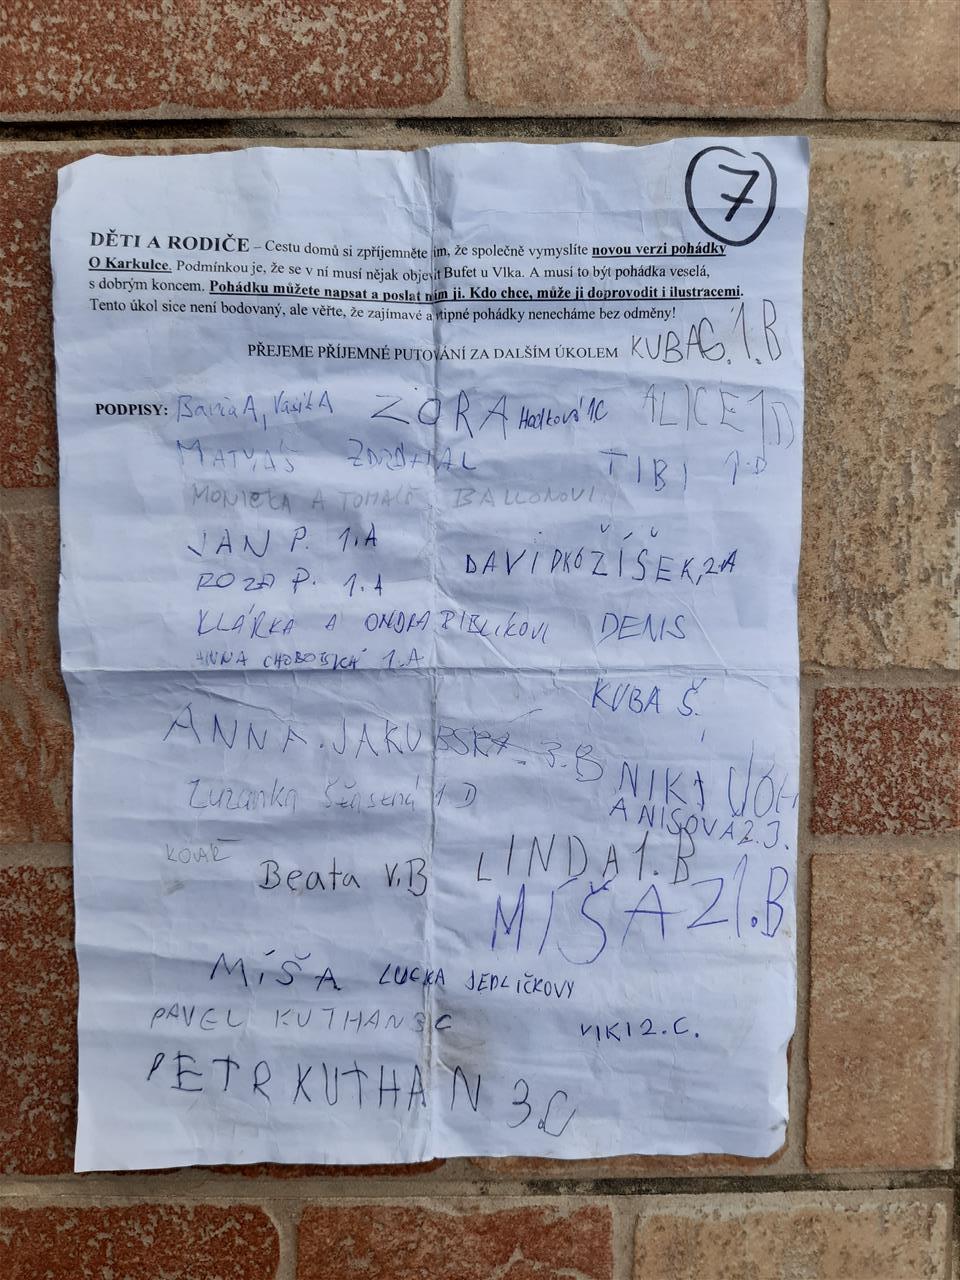 7
DĚTI A RODIČE – Cestu domů si zpříjemněte tím, že společně vymyslíte novou verzi pohádky
O Karkulce. Podmínkou je, že se v ní musí nějak objevit Bufet u Vlka. A musí to být pohádka veselá,
s dobrým koncem. Pohádku můžete napsat a poslat nám ji. Kdo chce, může ji doprovodit i ilustracemi.
Tento úkol sice není bodovaný, ale věřte, že zajímavé a vtipné pohádky nenecháme bez odměny!
PŘEJEME PŘÍJEMNÉ PUTOVÁNÍ ZA DALŠÍM ÚKOLEM KUBA G. 1.B
PODPISY: A, Vašík A ZORA 1C ALICE 1D
MATYÁŠ ZDRÁHAL TIBI 1.D
A TOMÁŠ BALLONOVI
JAN P. 1.A
DAVÍDKO ŽÍŠEK, 2.A
ROZA P. 1.A
KLÁRKA A ONDRA DENIS
ANNA 1.A
KUBA Š.
ANNA JAKUBSKÁ 3.B
NIKI
Zuzanka Šťastná 1D
2.J.
KOVÁŘ
Beata V.B LINDA 1.B
MÍŠA Z 1.B
MÍŠA LUCKA JEDLIČKOVY
PAVEL KUTHAN 3C
VIKI 2.C.
PETR KUTHAN 3.C